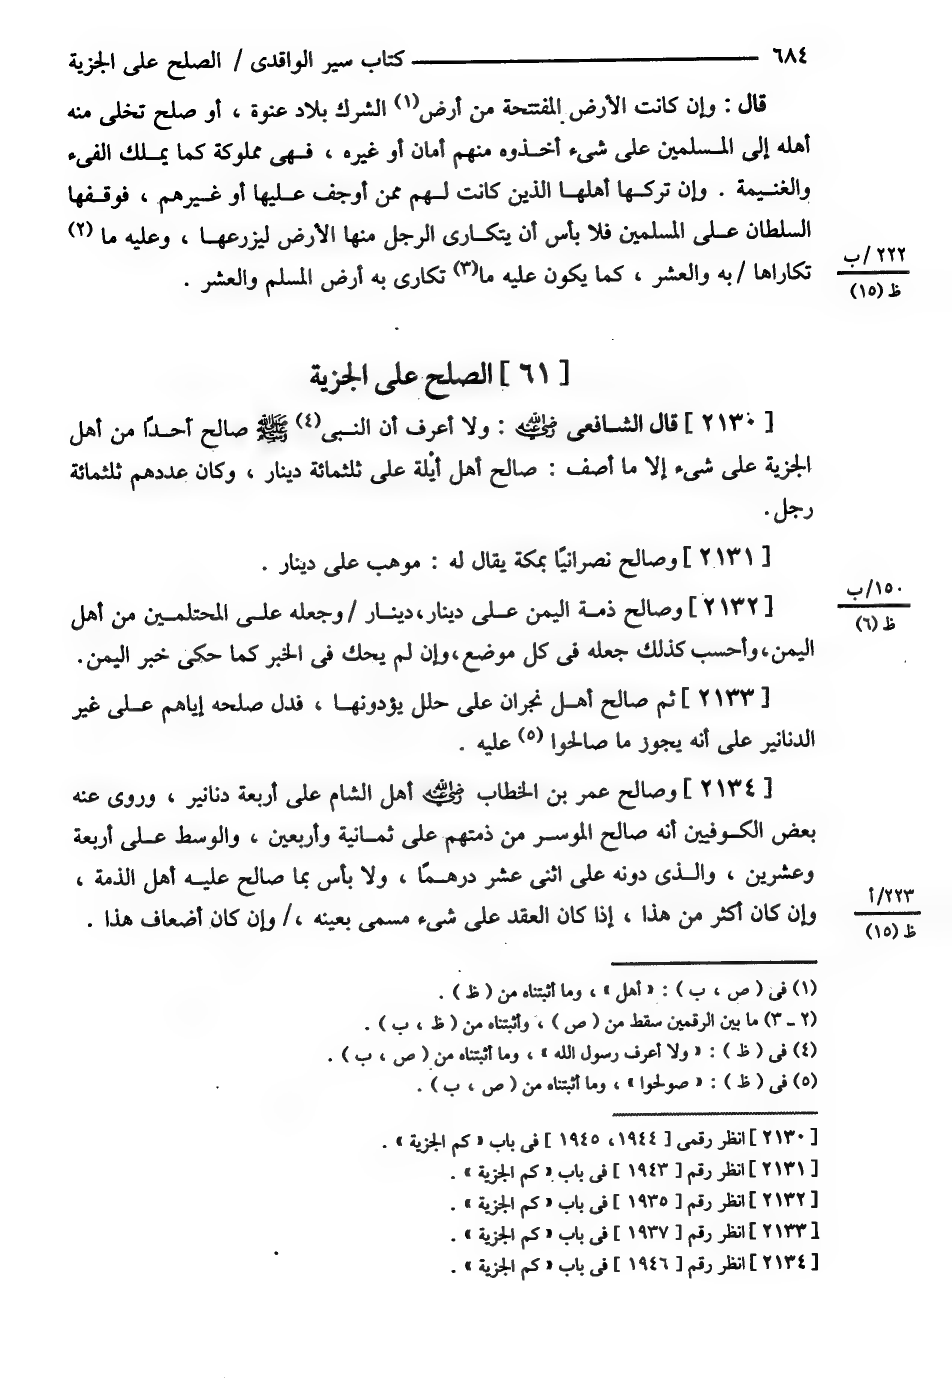 ٦٨٤ كتاب سير الواقدى / الصلح على الجزية
قال : وإن كانت الأرض المفتتحة من أرض(١) الشرك بلاد عنوة ، أو صلح تخلى منه
أهله إلى المسلمين على شىء أخذوه منهم أمان أو غيره ، فهى مملوكة كما يملك الفىء
والغنيمة . وإن تركها أهلها الذين كانت لهم ممن أوجف عليها أو غيرهم ، فوقفها
السلطان على المسلمين فلا بأس أن يتكارى الرجل منها الأرض ليزرعها ، وعليه ما (٢)
تكاراها / به والعشر ، كما يكون عليه ما(٣) تكارى به أرض المسلم والعشر .
٢٢٢ / ب
ظ (١٥)
[ ٦١ ] الصلح على الجزية
[ ٢١٣٠ ] قال الشافعى رضي الله عنه : ولا أعرف أن النبى(٤) ﷺ صالح أحدًا من أهل
الجزية على شىء إلا ما أصف : صالح أهل أيْلة على ثلثمائة دينار ، وكان عددهم ثلثمائة
رجل.
[ ٢١٣١ ] وصالح نصرانيًا بمكة يقال له : موهب على دينار .
[ ٢١٣٢ ] وصالح ذمة اليمن على دينار،دينار / وجعله على المحتلمين من أهل
اليمن،وأحسب كذلك جعله فى كل موضع،وإن لم يحك فى الخبر كما حكى خبر اليمن.
١٥٠/ب
ظ (٦)
[ ٢١٣٣ ] ثم صالح أهل نجران على حلل يؤدونها ، فدل صلحه إياهم على غير
الدنانير على أنه يجوز ما صالحوا (٥) عليه .
[ ٢١٣٤ ] وصالح عمر بن الخطاب رضي الله عنه أهل الشام على أربعة دنانير ، وروى عنه
بعض الكوفيين أنه صالح الموسر من ذمتهم على ثمانية وأربعين ، والوسط على أربعة
وعشرين ، والذى دونه على اثنى عشر درهمًا ، ولا بأس بما صالح عليه أهل الذمة ،
وإن كان أكثر من هذا ، إذا كان العقد على شىء مسمى بعينه ،/ وإن كان أضعاف هذا .
٢٢٣/أ
ظ (١٥)
(١) فى ( ص ، ب ) : « أهل » ، وما أثبتناه من ( ظ ) .
(٢ ـ ٣) ما بين الرقمين سقط من ( ص ) ، وأثبتناه من ( ظ ، ب ) .
(٤) فى ( ظ ) : « ولا أعرف رسول الله » ، وما أثبتناه من ( ص ، ب ) .
(٥) فى ( ظ ) : « صولحوا » ، وما أثبتناه من ( ص ، ب ) .
[ ٢١٣٠ ] انظر رقمى [ ١٩٤٤، ١٩٤٥ ] فى باب « كم الجزية » .
[ ٢١٣١ ] انظر رقم [ ١٩٤٣ ] فى باب « كم الجزية » .
[ ٢١٣٢ ] انظر رقم [ ١٩٣٥ ] فى باب « كم الجزية » .
[ ٢١٣٣ ] انظر رقم [ ١٩٣٧ ] فى باب « كم الجزية » .
[ ٢١٣٤ ] انظر رقم [ ١٩٤٦ ] فى باب « كم الجزية » .